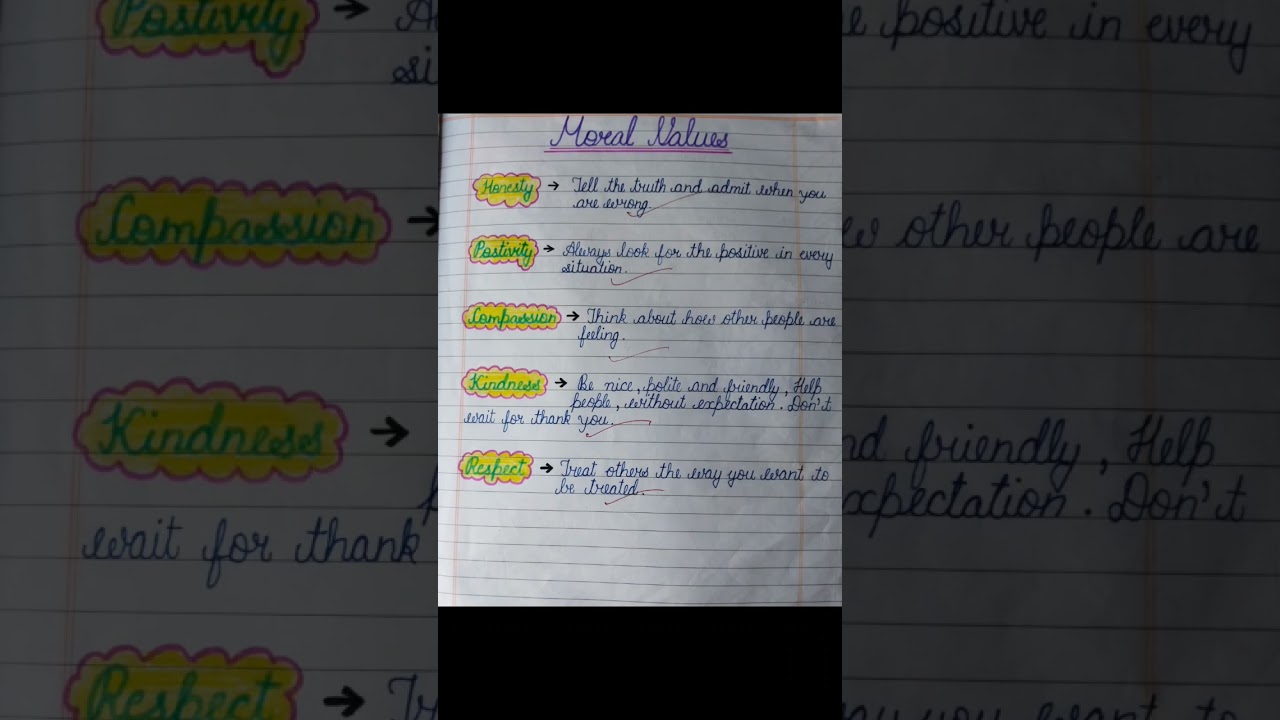 Moral Values
Honesty → Tell the truth and admit when you
are wrong.
Postivity → Always look for the positive in every
situation.
Compassion → Think about how other people are
feeling.
Kindness → Be nice, polite and friendly, Help
people, without expectation. Don't
wait for thank you.
Respect → Treat others the way you want to
be treated.